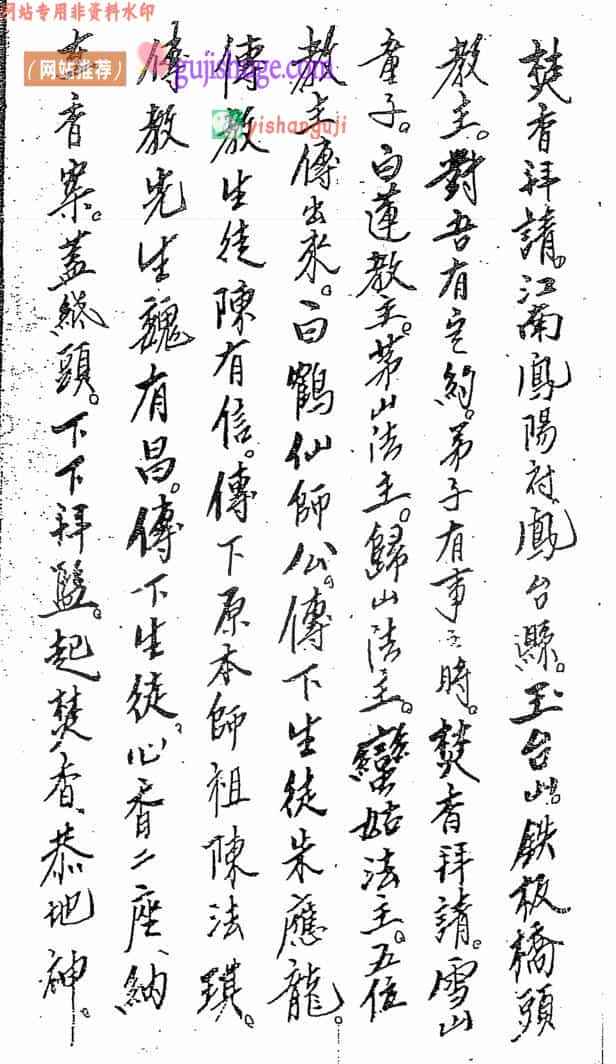 网站专用非资料水印
(网站推荐)
gujishuge.com
yishanguji
焚香拜請。江南鳳陽府鳳台縣。玉台山。鉄板橋頭
教主。對吾有言約。弟子有事之時。焚香拜請。雪山
童子。白蓮教主。茅山法主。歸山法主。蠻姑法主。五位
教主傳出來。白鶴仙師公。傳下生徒朱應龍。
傳教生徒陳有信。傳下原本師祖陳法。
傳教先生魏有昌。傳下生徒。心香二座、納
香案。蓋頭。下下拜。起焚香、恭地神。